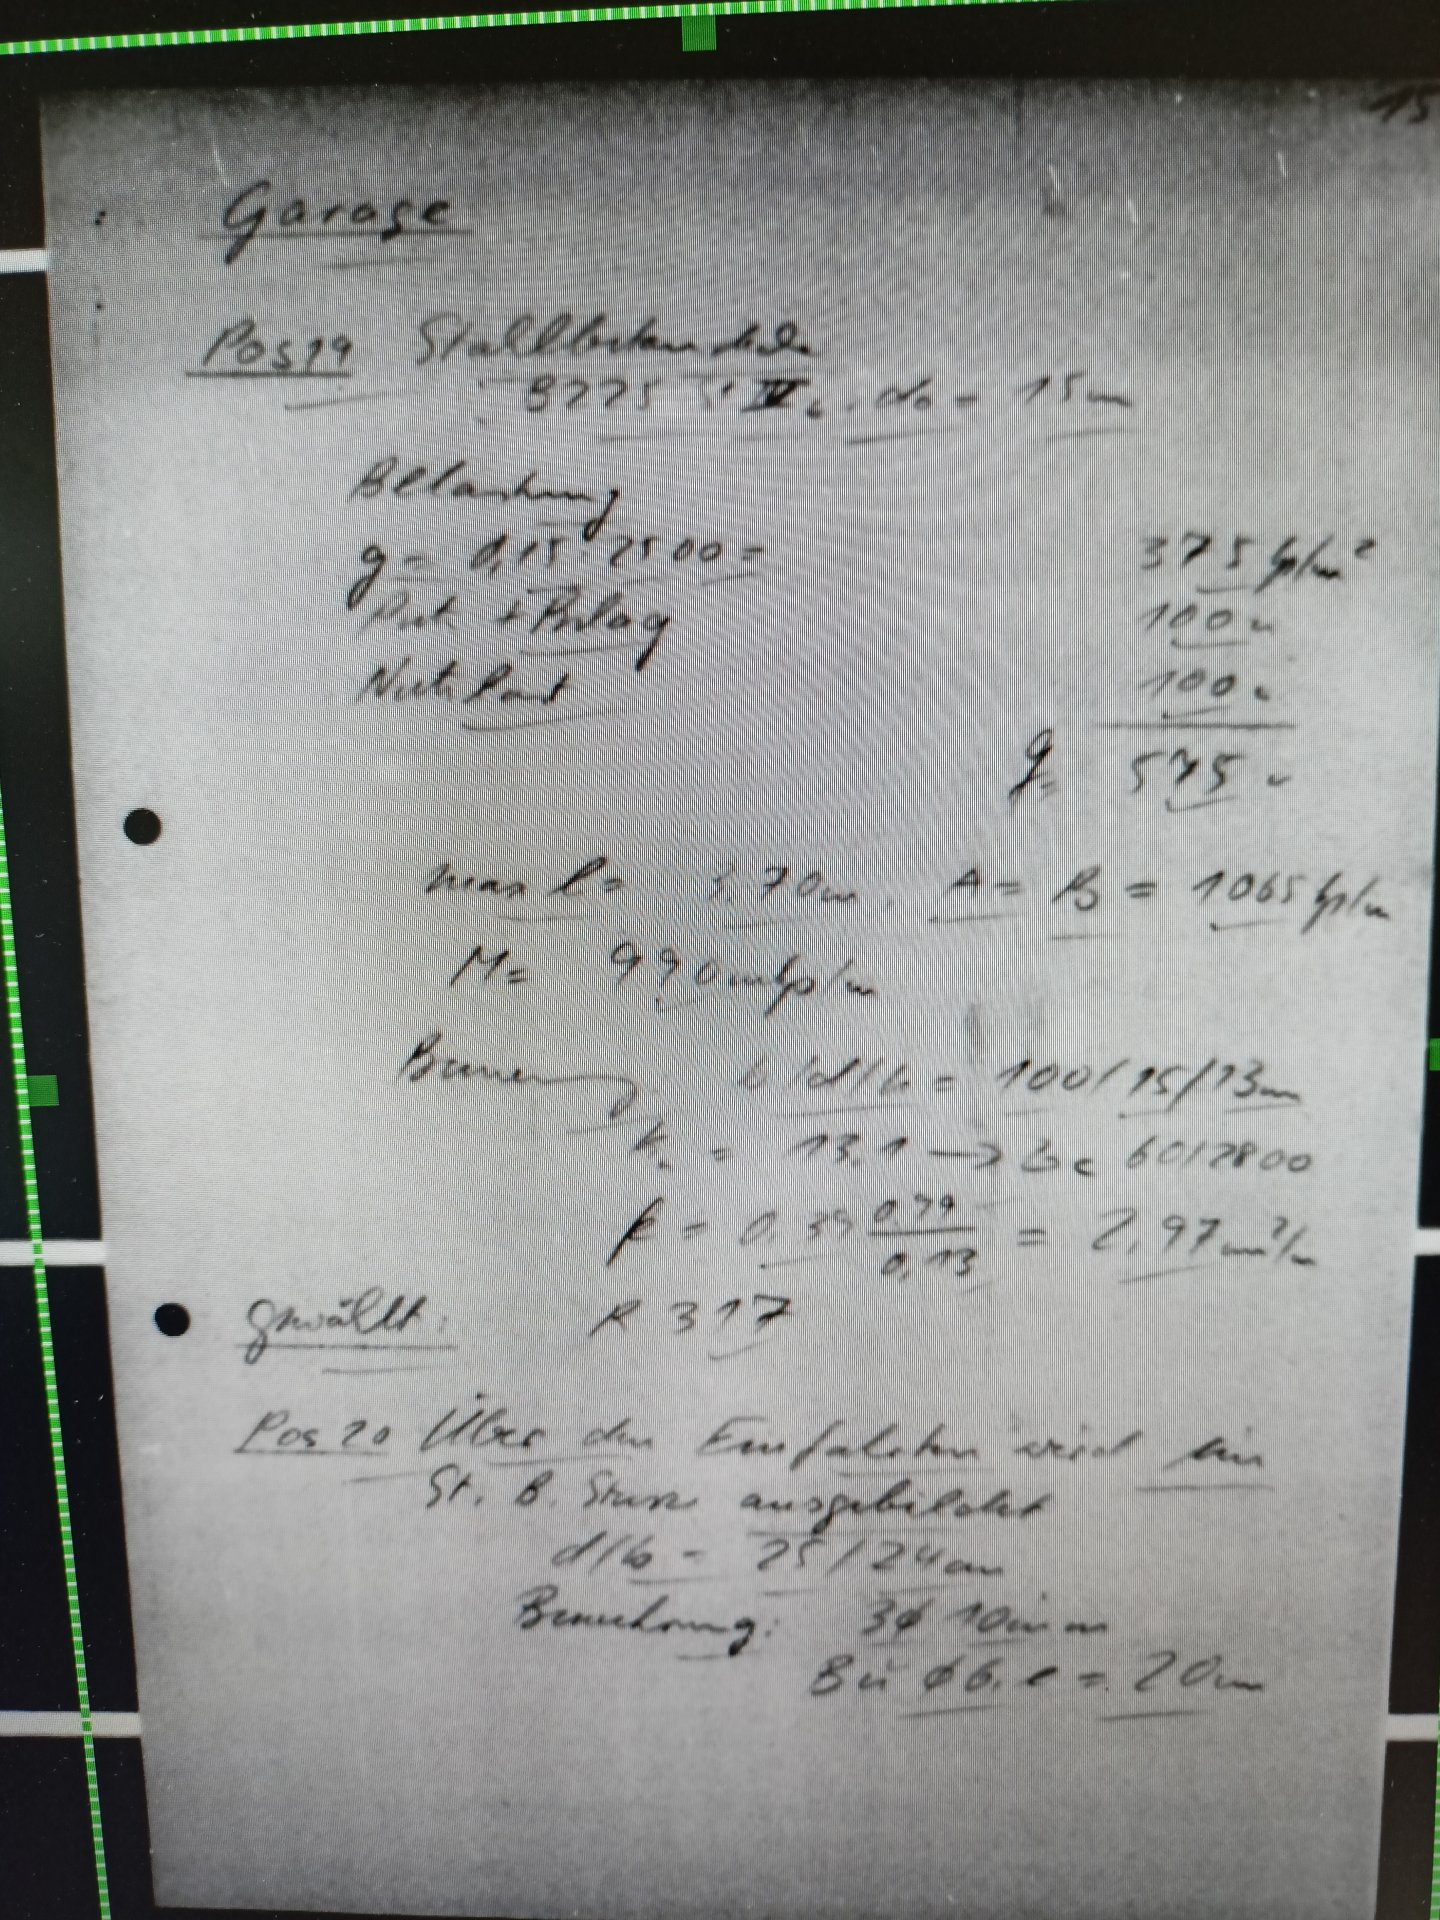 15
Garage
Pos 19 Stahlbetondecke
B 225 St IV, do = 15 cm
Belastung
g = 0,15 · 2500 = 375 kp/m²
Putz + Belag 100 "
Nutzlast 100 "
q = 575 "
max l = 3,70 m A = B = 1065 kp/m
M = 990 mkp/m
b/d/h = 100/15/13 cm
= 13,1 → 60/2800
= 0,39 0,99/0,13 = 2,97 cm²/m
gewählt: R 317
Pos 20 Über den Einfahrten wird ein
St. B. Sturz ausgebildet
d/b = 25/24 cm
Bewehrung: 3 ø 10 mm
Bü ø 6, e = 20 cm